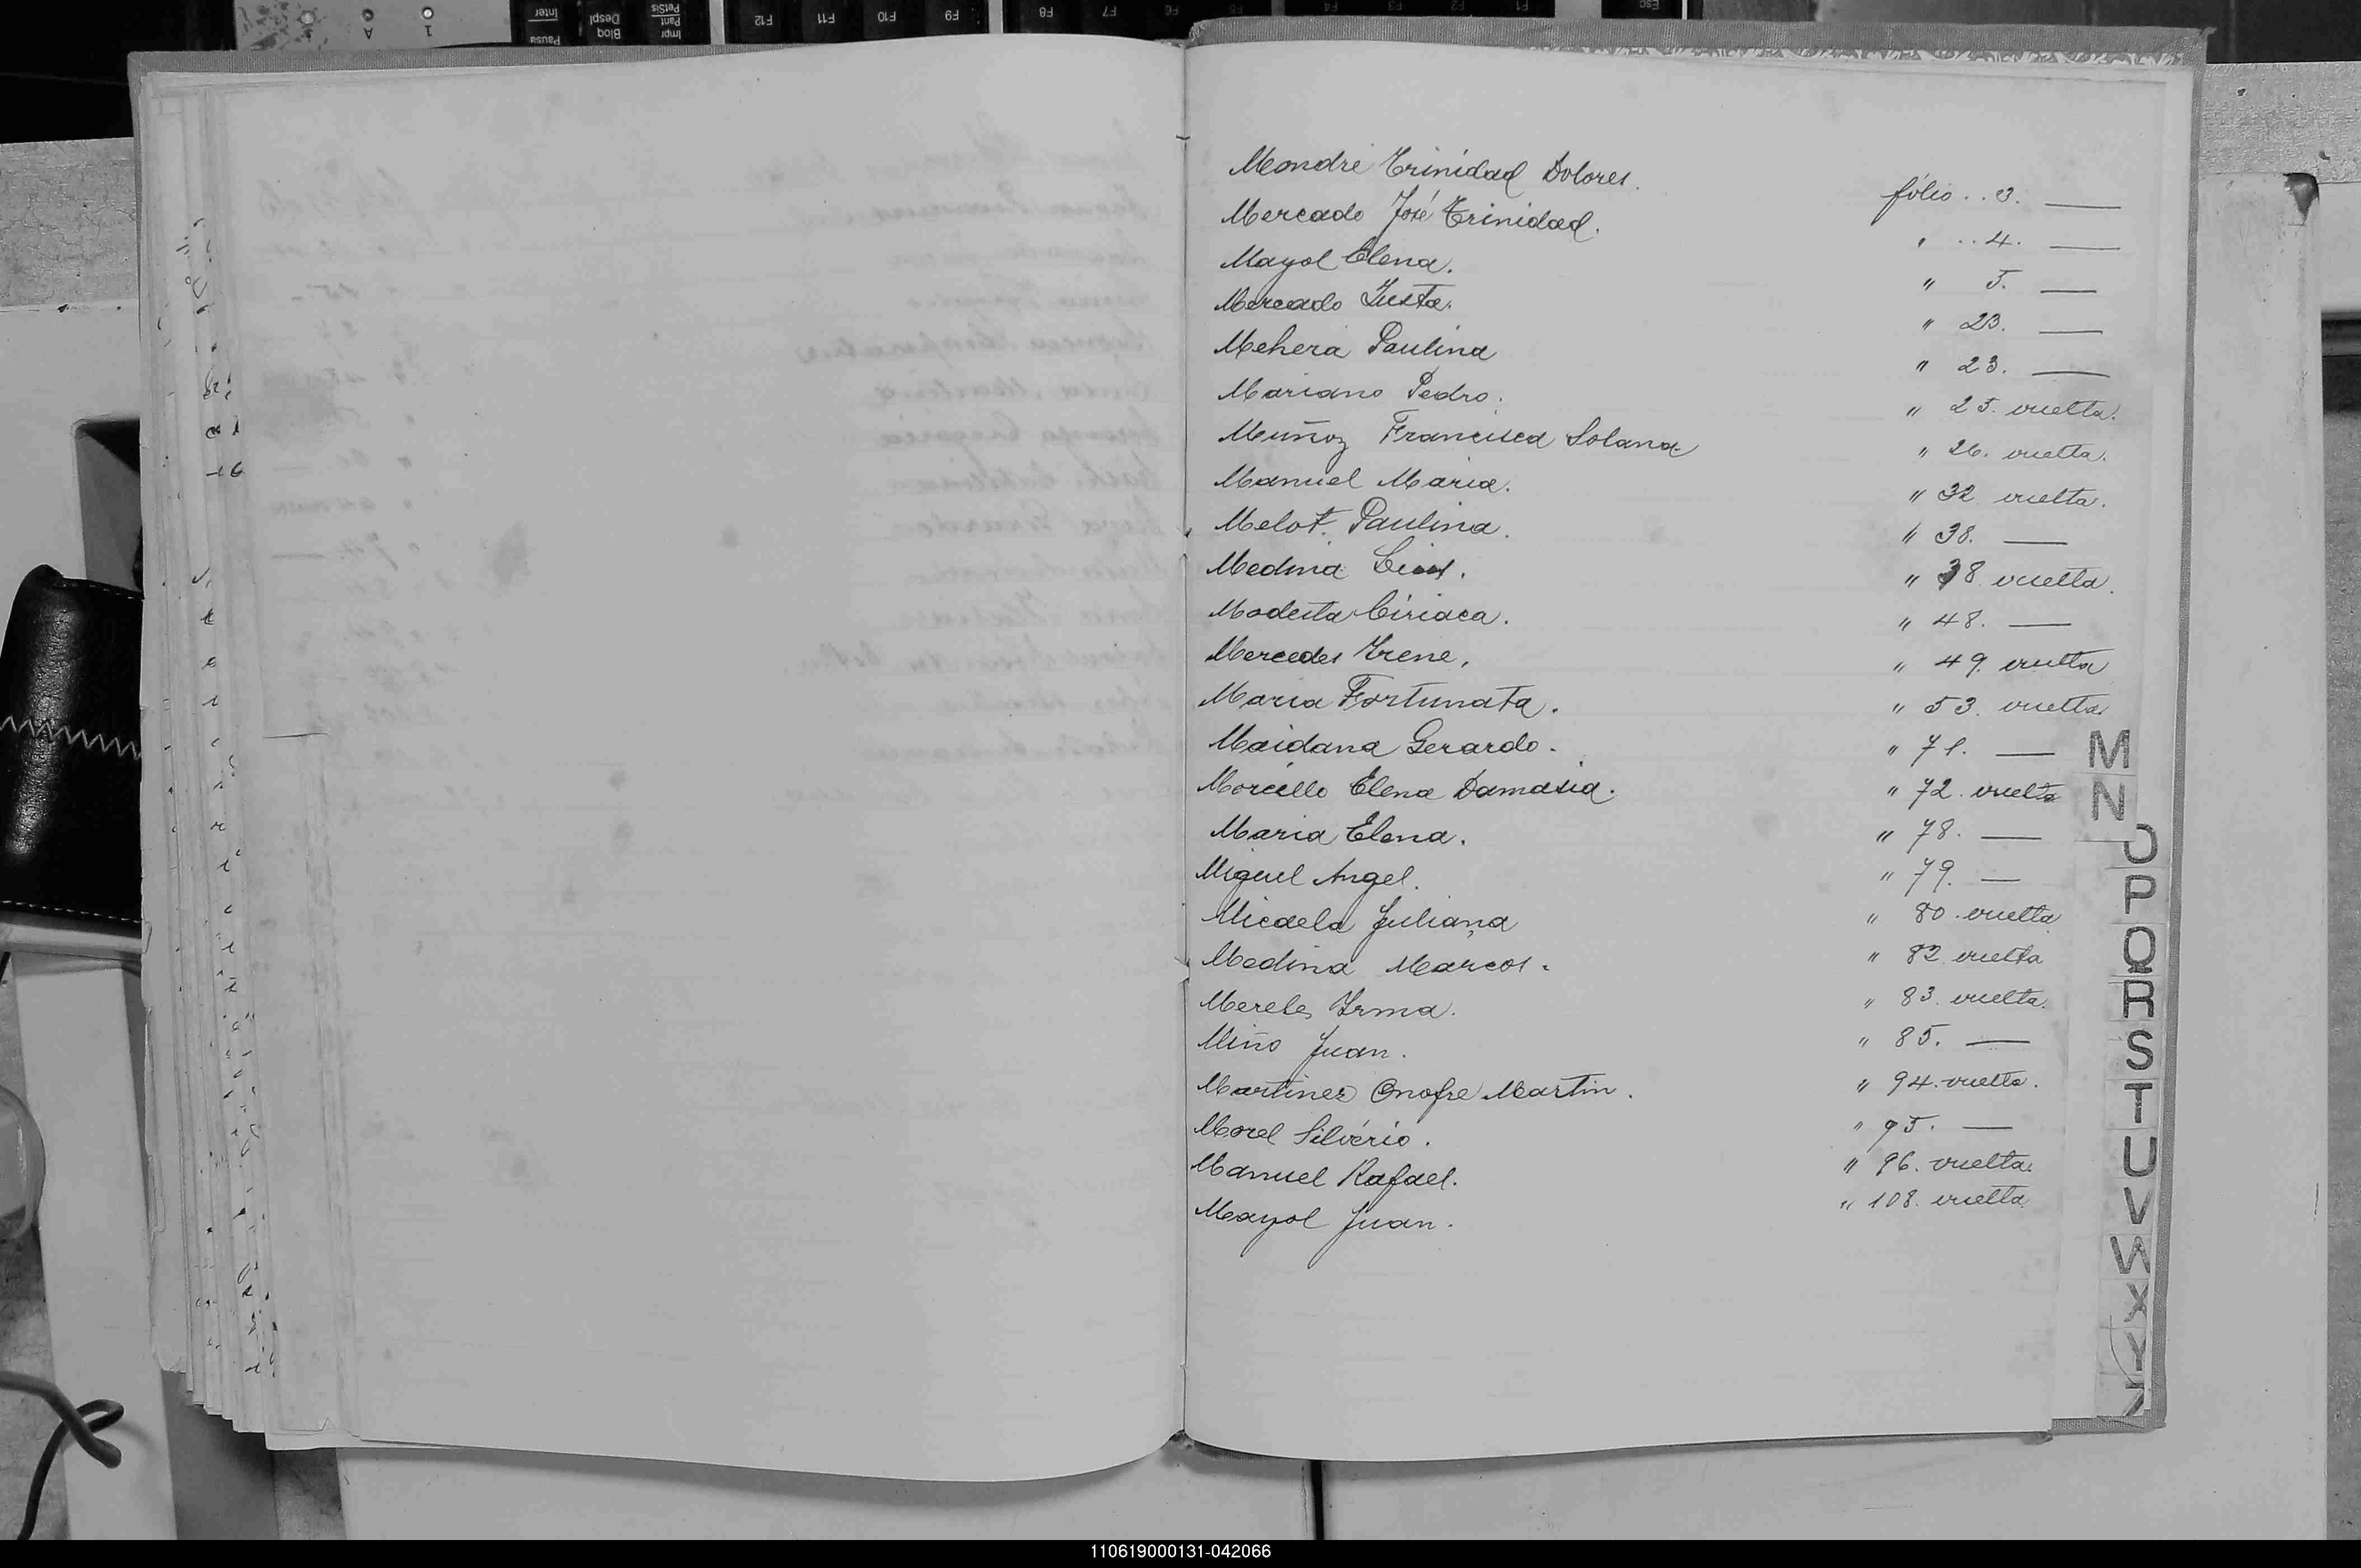 Mondre Trinidad Dolores. fólio . . 3. —
Mercado José Trinidad. " . . 4. —
Mayol Elena. " 5. —
Mercado Justa. " 23. —
Mehera Paulina " 23. —
Mariano Pedro. " 25. vuelta.
Muñoz Francisca Solana. " 26. vuelta.
Manuel Maria. " 32 vuelta.
Melot. Paulina. " 38. —
Medina " 38 vuelta.
Modesta Ciriaca. " 48. —
Mercedes Irene. " 49. vuelta
Maria Fortunata. " 53. vuelta.
Maidana Gerardo. " 71. —
Morcillo Elena Damasia. " 72. vuelta
Maria Elena. " 78. —
Miguel Angel. " 79. —
Micaela Juliana " 80. vuelta.
Medina Marcos. " 82. vuelta
Mereles Irma. " 83. vuelta.
Miño Juan. " 85. —
Martinez Onofre Martin. " 94. vuelta.
Morel Silvério. " 95. —
Manuel Rafael. " 96. vuelta.
Mayol Juan. " 108. vuelta.
M
N
O
P
Q
R
S
T
U
V
W
X
Y
Z
110619000131-042066